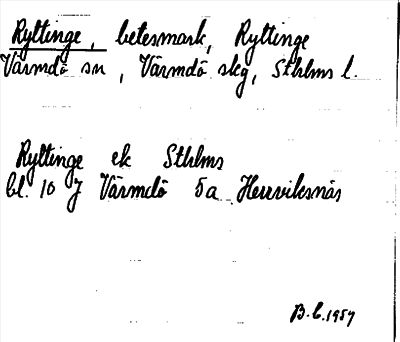 Ryltinge, betesmark, Ryltinge
Värmdö sn, Värmdö skg, Sthlms l.
Ryltinge ek Sthlms
bl. 10 J Värmdö 5a Herrviksnäs
B.L. 1957